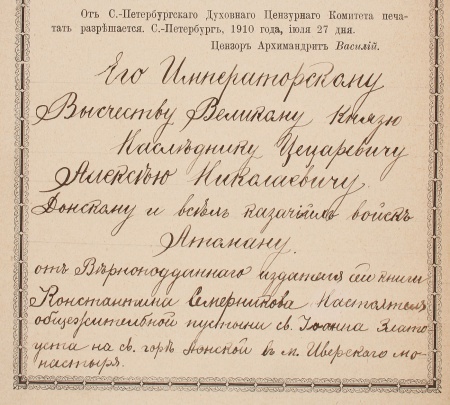 Отъ С.-Петербургскаго Духовнаго Цензурнаго Комитета печа-
тать разрѣшается. С.-Петербургъ, 1910 года, іюля 27 дня.
Цензоръ Архимандритъ Василій.
Его Императорскому
Высчеству Великому Князю
Наслѣднику Цецаревичу
Алексѣю Николаевичу
Донскому и всѣхъ казачіихъ войскъ
Атаману.
отъ Вѣрноподданнаго издателя сей книги
Константина Семерникова Настоятеля
общежителбной пустыни св. Іоанна Злато-
уста на св. горѣ Аѳонской въ м. Иверскаго мо-
настыря.